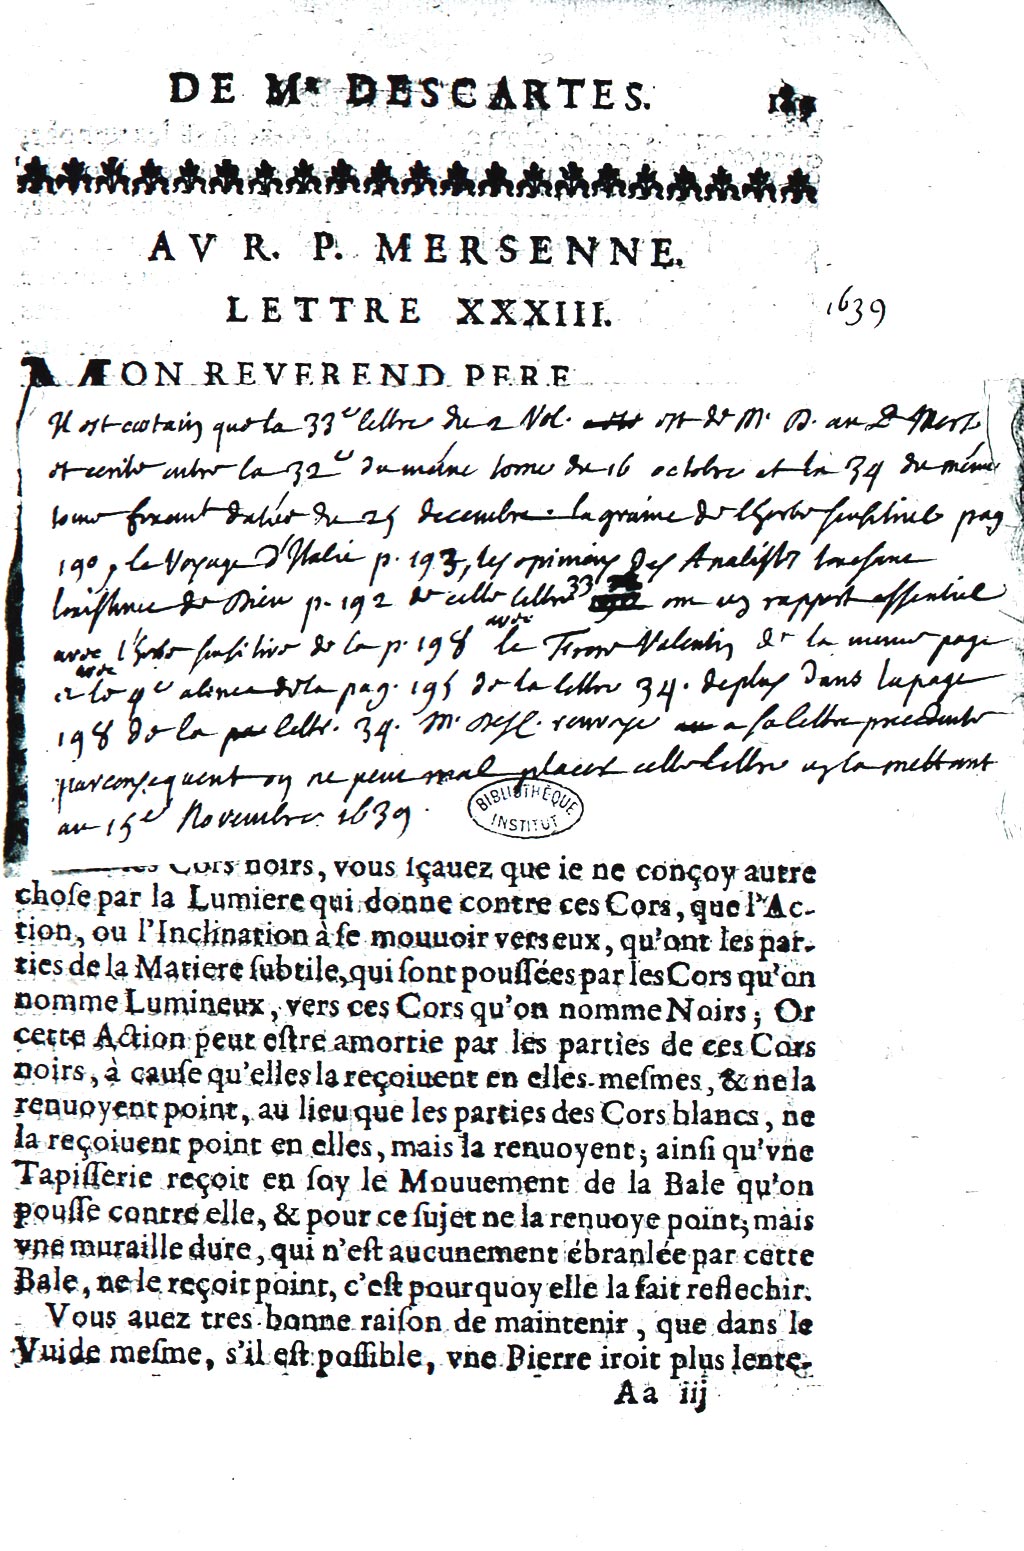 DE Mʳ DESCARTES. 189
AV R. P. MERSENNE.
LETTRE XXXIII.
1639
MON REVEREND PERE
Il est certain que la 33ᵉ lettre du 2 Vol. est de M. D. au P Mers.
et ecrite entre la 32ᵉ du méme tome du 16 octobre et la 34 du méme
tome datée du 25 decembre. la graine de l'herbe sensitive pag
190, le Voyage d'Italie p. 193, les opinions des Analistes
de Dieu p. 192 de cette lettre 33 ont un rapport essentiel
avec l'herbe sensitive de la p. 198 avec le Valentin de la meme page
avec le 4ᵉ alinea de la pag. 195 de la lettre 34. de plus dans la page
198 de la lettr. 34. M. Desc. renvoye a sa lettre precedente
par consequent on ne peut mal placer cette lettre en la mettant
au 15ᵉ Novembre 1639.
BIBLIOTHÈQUE
INSTITUT
Cors noirs, vous sçauez que ie ne conçoy autre
chose par la Lumiere qui donne contre ces Cors, que l'Ac-
tion, ou l'Inclination à se mouuoir vers eux, qu'ont les par-
ties de la Matiere subtile, qui sont poussées par les Cors qu'on
nomme Lumineux, vers ces Cors qu'on nomme Noirs; Or
cette Action peut estre amortie par les parties de ces Cors
noirs, à cause qu'elles la reçoiuent en elles-mesmes, & ne la
renuoyent point, au lieu que les parties des Cors blancs, ne
la reçoiuent point en elles, mais la renuoyent; ainsi qu'vne
Tapisserie reçoit en soy le Mouuement de la Bale qu'on
pousse contre elle, & pour ce sujet ne la renuoye point; mais
vne muraille dure, qui n'est aucunement ébranlée par cette
Bale, ne le reçoit point, c'est pourquoy elle la fait reflechir.
Vous auez tres bonne raison de maintenir, que dans le
Vuide mesme, s'il est possible, vne Pierre iroit plus lente-
Aa iij